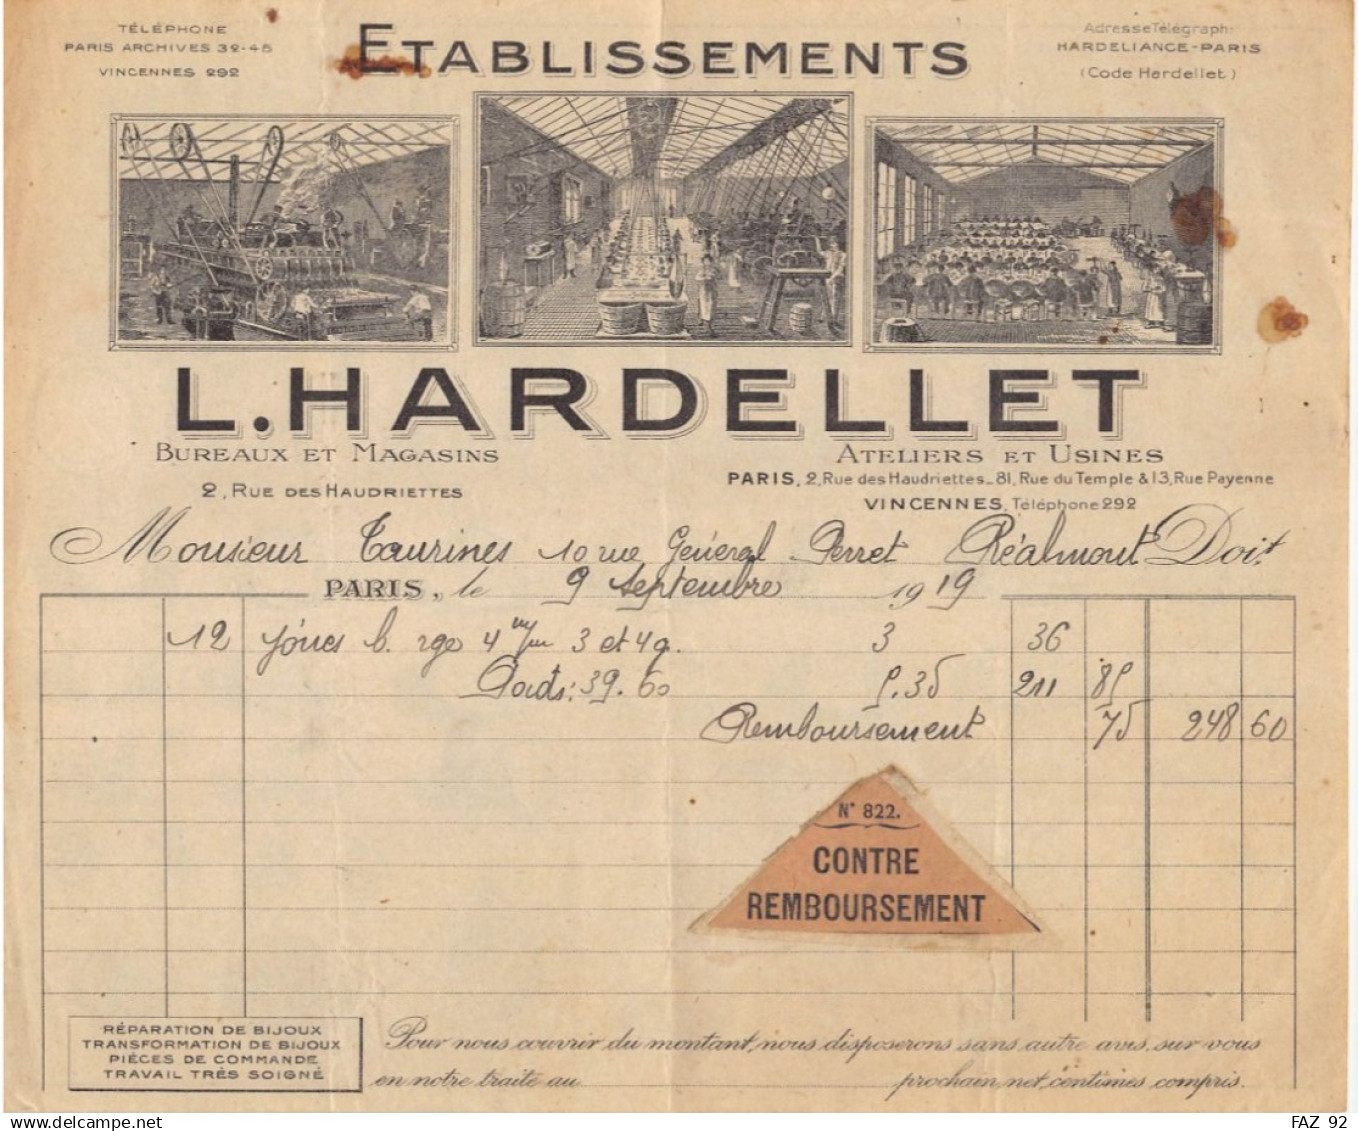 TÉLÉPHONE
PARIS ARCHIVES 39-45
VINCENNES 292
ETABLISSEMENTS
Adresse Télégraph:
HARDELIANCE-PARIS
(Code Hardellet)
L. HARDELLET
BUREAUX ET MAGASINS
2, RUE DES HAUDRIETTES
ATELIERS ET USINES
PARIS, 2, Rue des Haudriettes_81, Rue du Temple & 13, Rue Payenne
VINCENNES, Téléphone 292
Monsieur Taurines 10 rue Général Perret Réalmont Doit
PARIS, le 9 Septembre 1919
12 b. rge 4 m/m 3 et 4 g. 3 36
Poids: 39.60 5.35 211 85
Remboursement 75 248 60
N° 822.
CONTRE
REMBOURSEMENT
RÉPARATION DE BIJOUX
TRANSFORMATION DE BIJOUX
PIÈCES DE COMMANDE
TRAVAIL TRÈS SOIGNÉ
Pour nous couvrir du montant, nous disposerons sans autre avis, sur vous
en notre traite au prochain, net, centimes compris.
FAZ 92